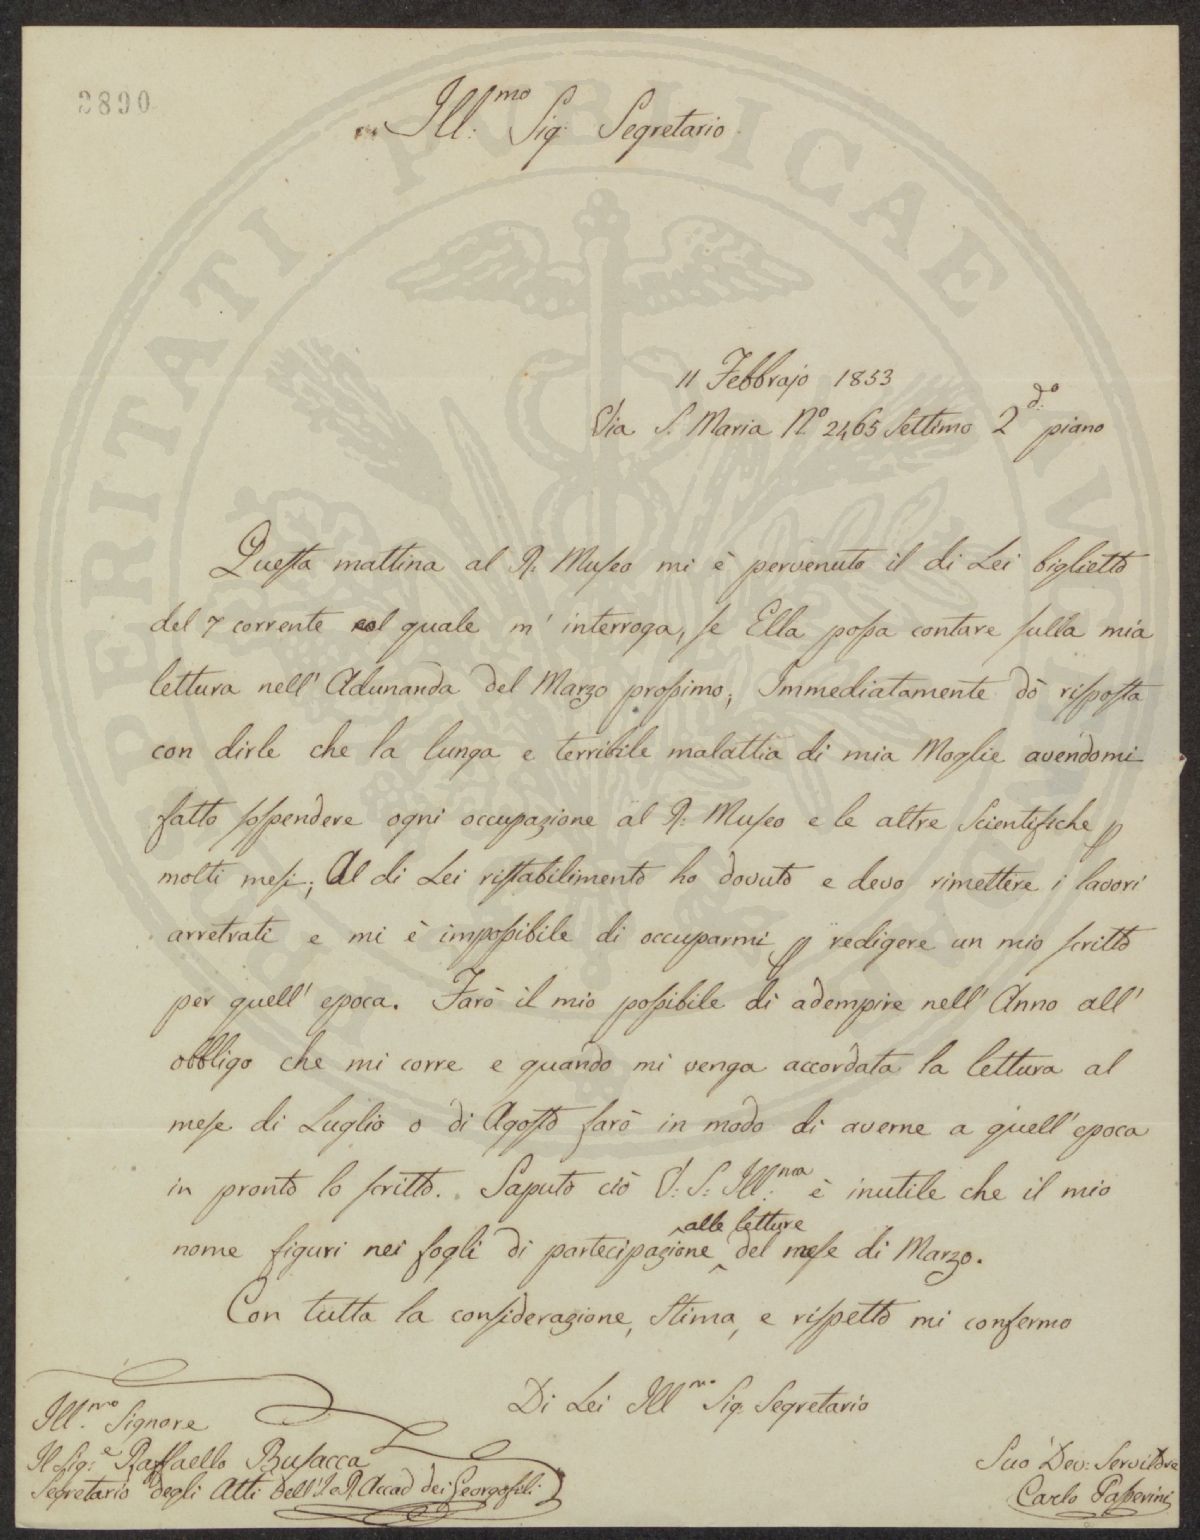 2890
Ill:mo Sig: Segretario
11 Febbrajo 1853
Via S. Maria N.o 2465 Settimo 2d:o piano
Questa mattina al R: Museo mi è pervenuto il di Lei biglietto
del 7 corrente col quale m' interroga, se Ella possa contare sulla mia
lettura nell' Adunanda del Marzo prossimo; Immediatamente dò risposta
con dirle che la lunga e terribile malattia di mia Moglie avendomi
fatto sospendere ogni occupazione al R: Museo e le altre Scientifiche p
molti mesi; Al di Lei ristabilimento ho dovuto e devo rimettere i lavori
arretrati e mi è impossibile di occuparmi p redigere un mio scritto
per quell' epoca. Farò il mio possibile di adempire nell' Anno all'
obbligo che mi corre e quando mi venga accordata la lettura al
mese di Luglio o di Agosto farò in modo di averne a quell' epoca
in pronto lo scritto. Saputo ciò V: S: Ill:ma è inutile che il mio
alle letture
nome figuri nei fogli di partecipazione del mese di Marzo.
Con tutta la considerazione, Stima, e rispetto mi confermo
Di Lei Illmo Sig. Segretario
Ill.mo Signore
Il Sig:e Raffaello Busacca
Segretario degli Atti dell' I. e R. Accad dei Georgofili
Suo Dev: Servitore
Carlo Passerini
PROSPERITATI PUBLICAE AUGENDAE